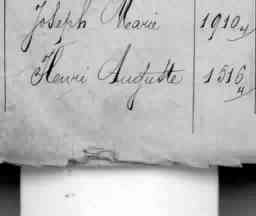 Joseph Marie 1910
Henri Auguste 1516